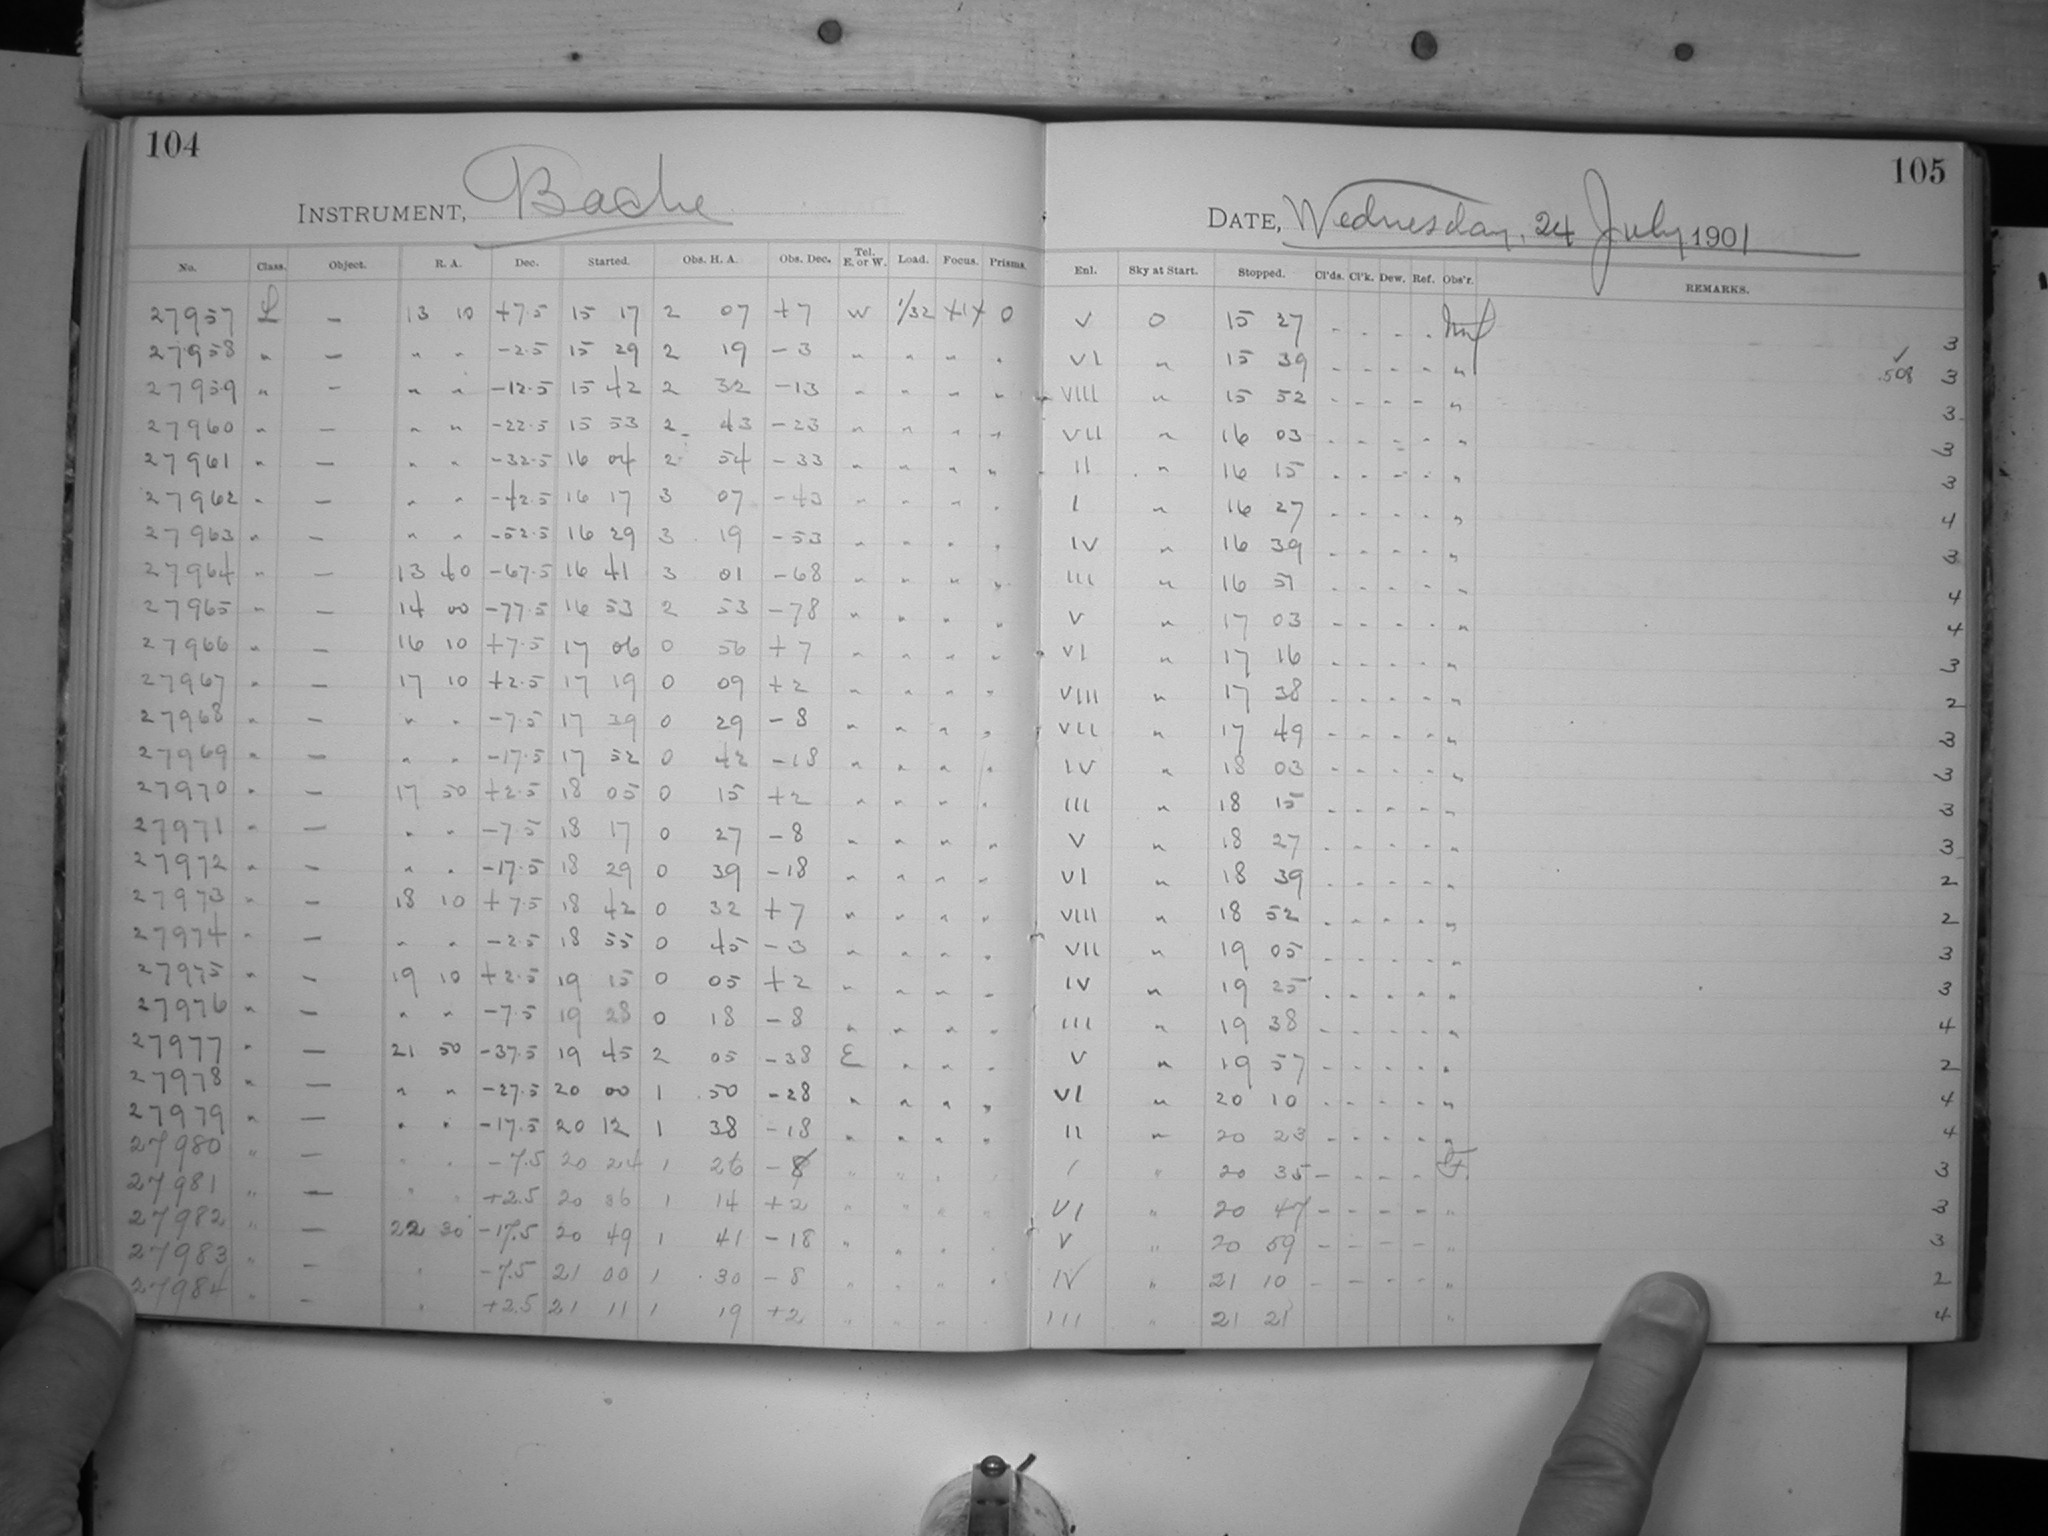 104
105
INSTRUMENT, Bache
DATE, Wednesday, 24 July 1901
No. Class. Object. R. A. Dec. Started. Obs. H. A. Obs. Dec. Tel. E. or W. Load. Focus. Prisms. Enl. Sky at Start. Stopped. Cl'ds. Cl'k. Dew. Ref. Obs'r. REMARKS.
27957 L — 13 10 +7.5 15 17 2 07 +7 W 1/32 0 V 0 15 27 - - - - 3
27958 " — " " -2.5 15 29 2 19 -3 " " " " VI " 15 39 - - - - " .508 3
27959 " — " " -12.5 15 42 2 32 -13 " " " " VIII " 15 52 - - - - " 3
27960 " — " " -22.5 15 53 2 43 -23 " " " " VII " 16 03 - - - - " 3
27961 " — " " -32.5 16 04 2 54 -33 " " " " II " 16 15 - - - - " 3
27962 " — " " -42.5 16 17 3 07 -43 " " " " I " 16 27 - - - - " 4
27963 " — " " -52.5 16 29 3 19 -53 " " " " IV " 16 39 - - - - " 3
27964 " — 13 40 -67.5 16 41 3 01 -68 " " " " III " 16 51 - - - - " 4
27965 " — 14 00 -77.5 16 53 2 53 -78 " " " " V " 17 03 - - - - " 4
27966 " — 16 10 +7.5 17 06 0 56 +7 " " " " VI " 17 16 - - - - " 3
27967 " — 17 10 +2.5 17 19 0 09 +2 " " " " VIII " 17 38 - - - - " 2
27968 " — " " -7.5 17 39 0 29 -8 " " " " VII " 17 49 - - - - " 3
27969 " — " " -17.5 17 52 0 42 -18 " " " " IV " 18 03 - - - - " 3
27970 " — 17 50 +2.5 18 05 0 15 +2 " " " " III " 18 15 - - - - " 3
27971 " — " " -7.5 18 17 0 27 -8 " " " " V " 18 27 - - - - " 3
27972 " — " " -17.5 18 29 0 39 -18 " " " " VI " 18 39 - - - - " 2
27973 " — 18 10 +7.5 18 42 0 32 +7 " " " " VIII " 18 52 - - - - " 2
27974 " — " " -2.5 18 55 0 45 -3 " " " " VII " 19 05 - - - - " 3
27975 " — 19 10 +2.5 19 15 0 05 +2 " " " " IV " 19 25 - - - - " 3
27976 " — " " -7.5 19 28 0 18 -8 " " " " III " 19 38 - - - - " 4
27977 " — 21 50 -37.5 19 45 2 05 -38 E " " " V " 19 57 - - - - " 2
27978 " — " " -27.5 20 00 1 50 -28 " " " " VI " 20 10 - - - - " 4
27979 " — " " -17.5 20 12 1 38 -18 " " " " II " 20 23 - - - - " 4
27980 " — " " -7.5 20 24 1 26 -8 " " " " I " 20 35 - - - - 3
27981 " — " " +2.5 20 36 1 14 +2 " " " " VI " 20 47 - - - - " 3
27982 " — 22 30 -17.5 20 49 1 41 -18 " " " " V " 20 59 - - - - " 3
27983 " — " -7.5 21 00 1 30 -8 " " " " IV " 21 10 - - - - " 2
27984 " — " +2.5 21 11 1 19 +2 " " " " III " 21 21 " 4